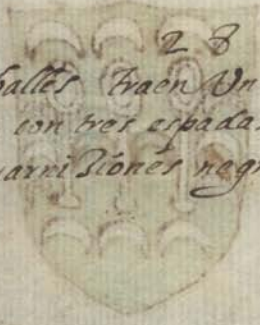 28
balles traen Un
con tres espadas
uarniziones negr